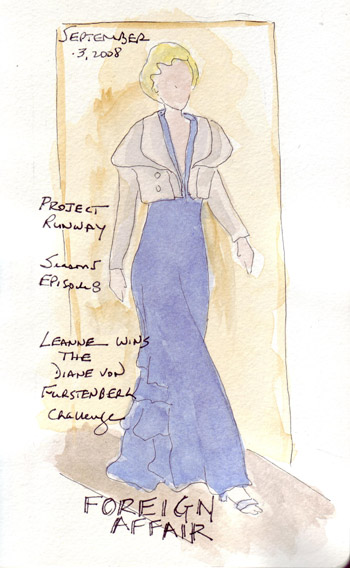 SEPTEMBER
·3, 2008
PROJECT
RUNWAY
Season 5
EPISODE 8
LEANNE WINS
THE
DIANE VON
FURSTENBERG
Challenge
FOREIGN
AFFAIR